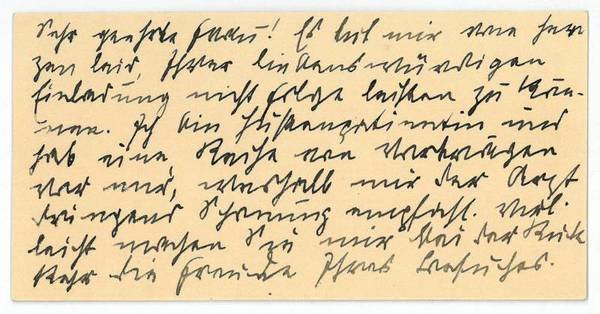 Sehr geehrte Frau! Es tut mir von her
zen leid, Ihrer liebenswürdigen
Einladung nicht Folge leisten zu kön-
nen. Ich bin Hustenpatientin und
hab eine Reihe von Vorträgen
vor mir, weshalb mir der Arzt
dringend Schonung empfahl. Viel
leicht machen Sie mir bei der Rück
kehr die Freude Ihres Besuches.